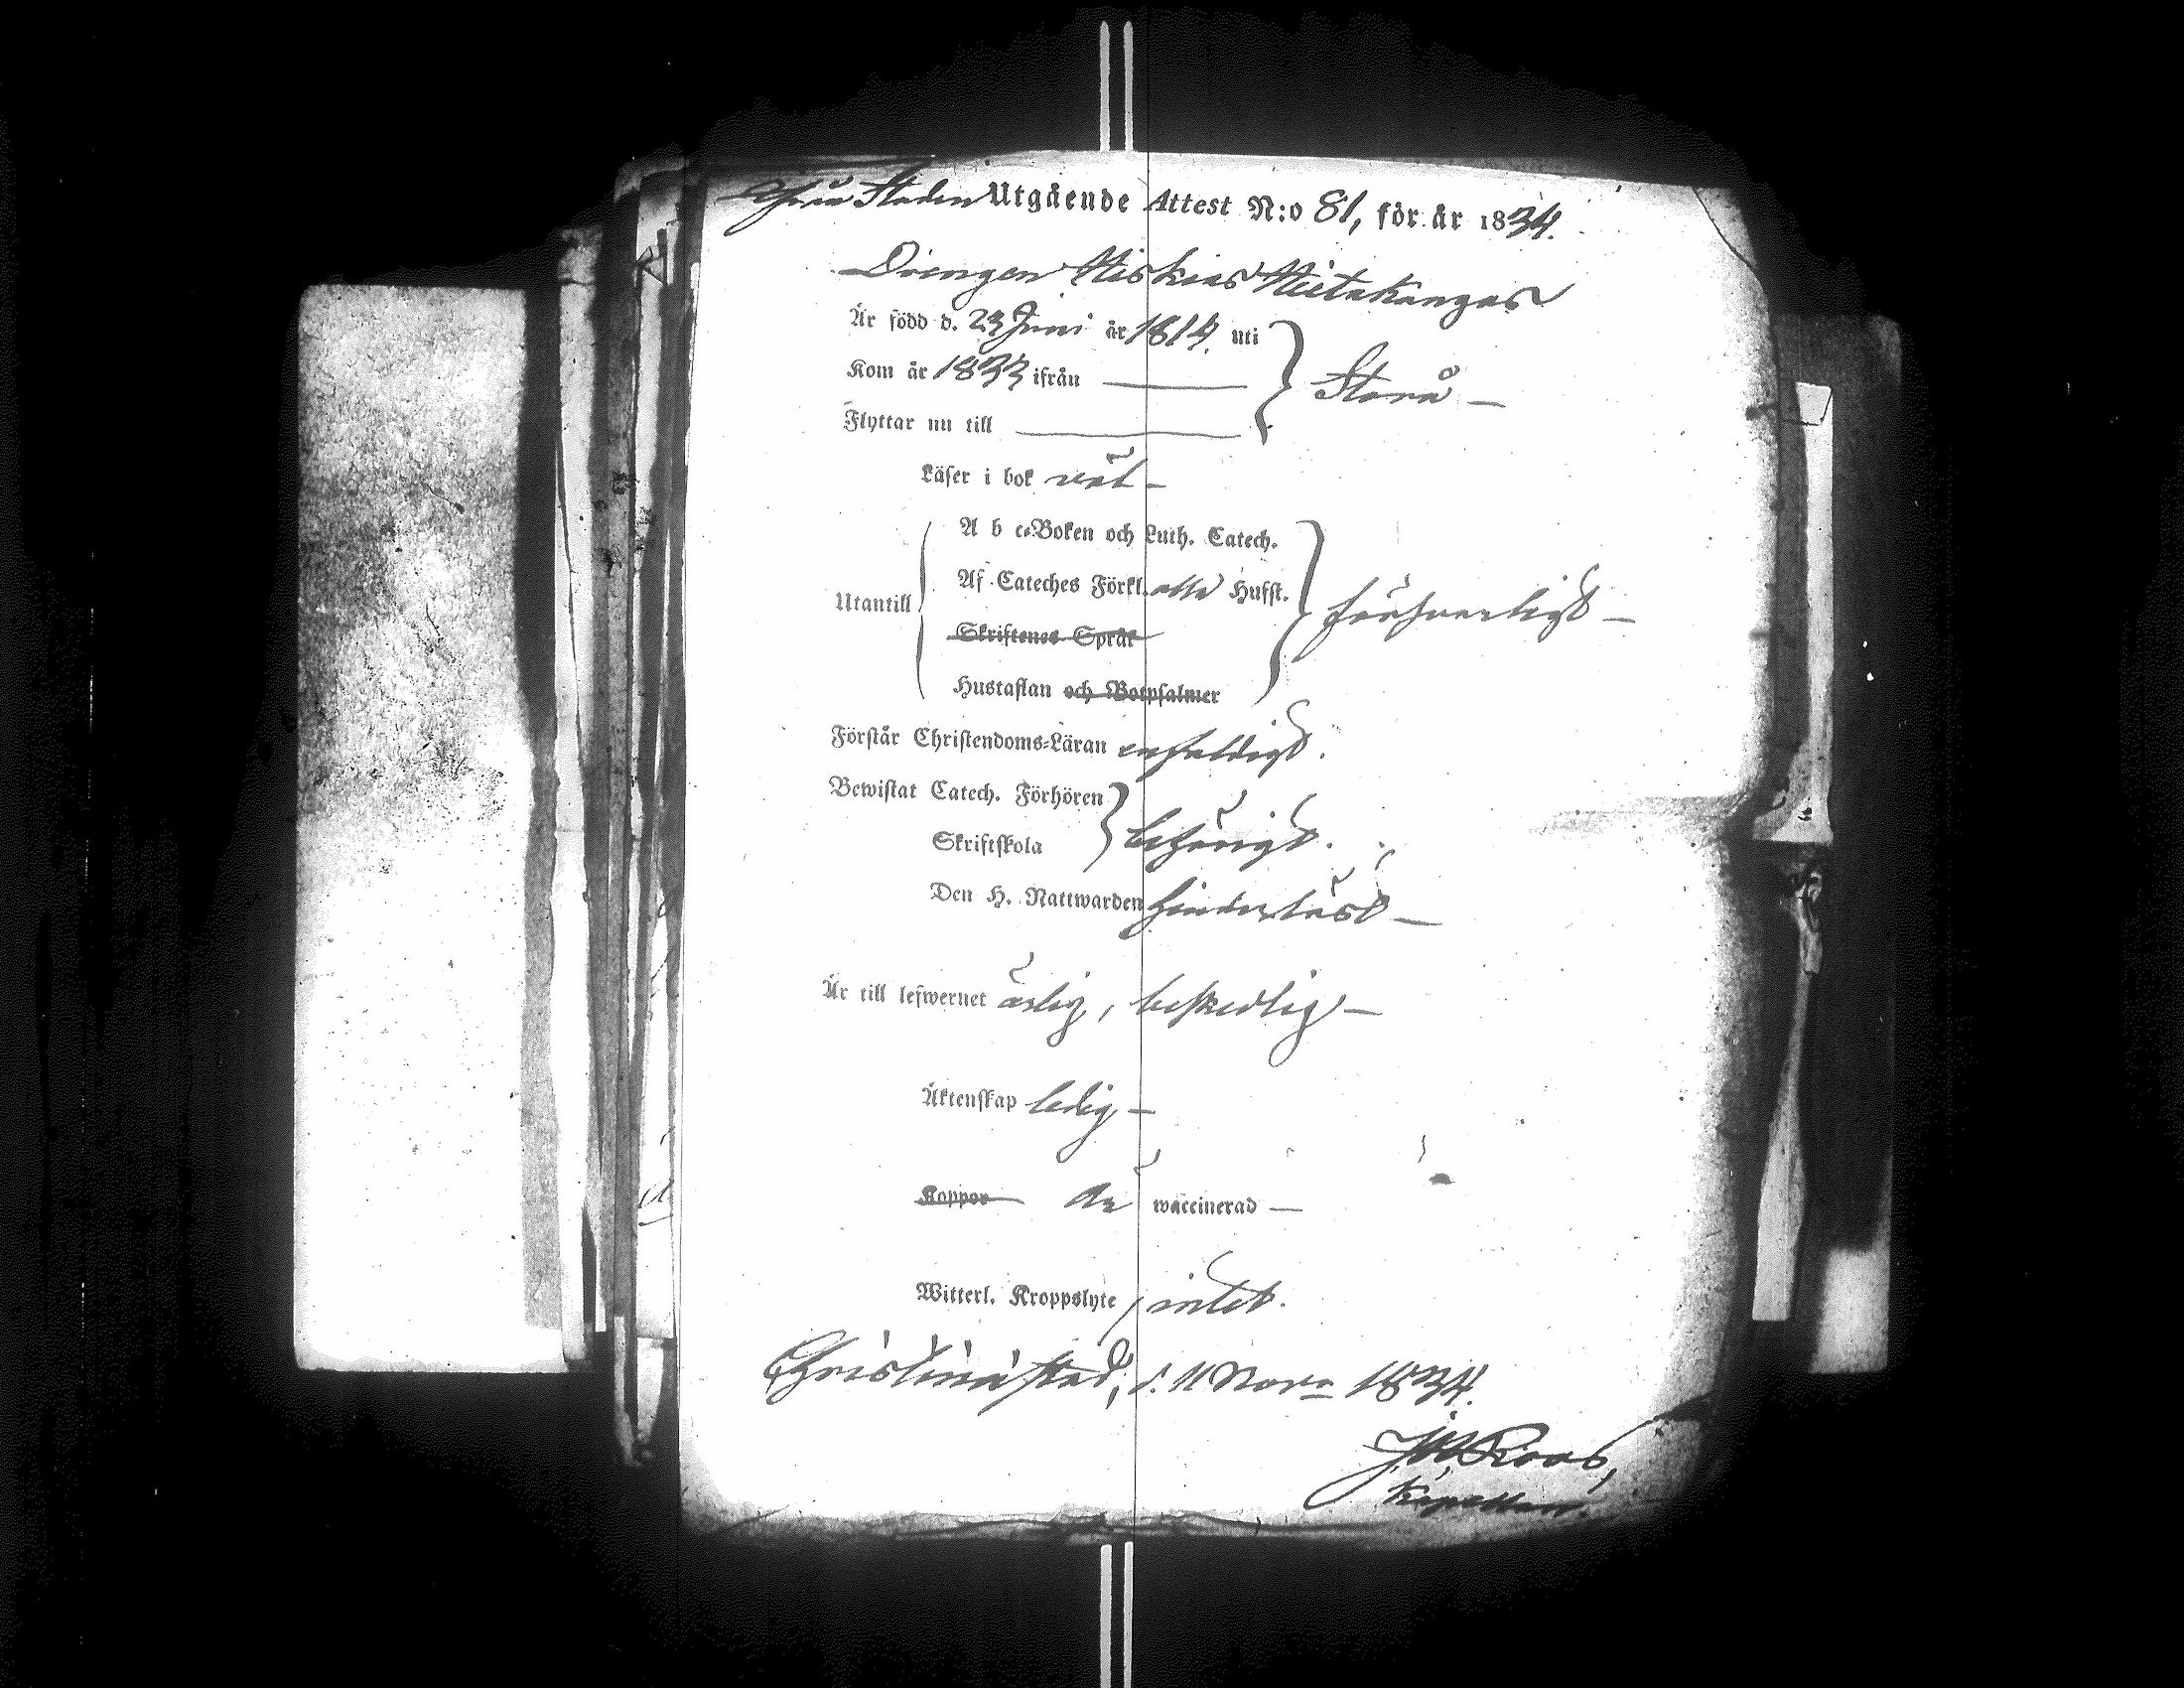 från Staden Utgående Attest N:o 81, för år 1834.
Drengen Hiskias Hietakangas
Är född d. 23 Juni år 1814. uti
Kom år 1833 ifrån
Storå
Flyttar nu till
Läser i bok väl
Utantill
A b c-Boken och Luth. Catech.
Af Cateches Förkl. alla Hufst.
försvarligt
Skriftenes Språk
Hustaflan och Botpsalmer
Förstår Christendoms-Läran enfaldigt.
Bewistat Catech. Förhören
Skriftskola
behörigt.
Den H. Nattwarden hinderlöst
Är till lefwernet ärlig, beskedlig
Äktenskap ledig
Koppor är waccinerad
Witterl. Kroppslyte, intet.
Christinæstad, d. 11 Novr 1834.
Roos,
Kapellan.